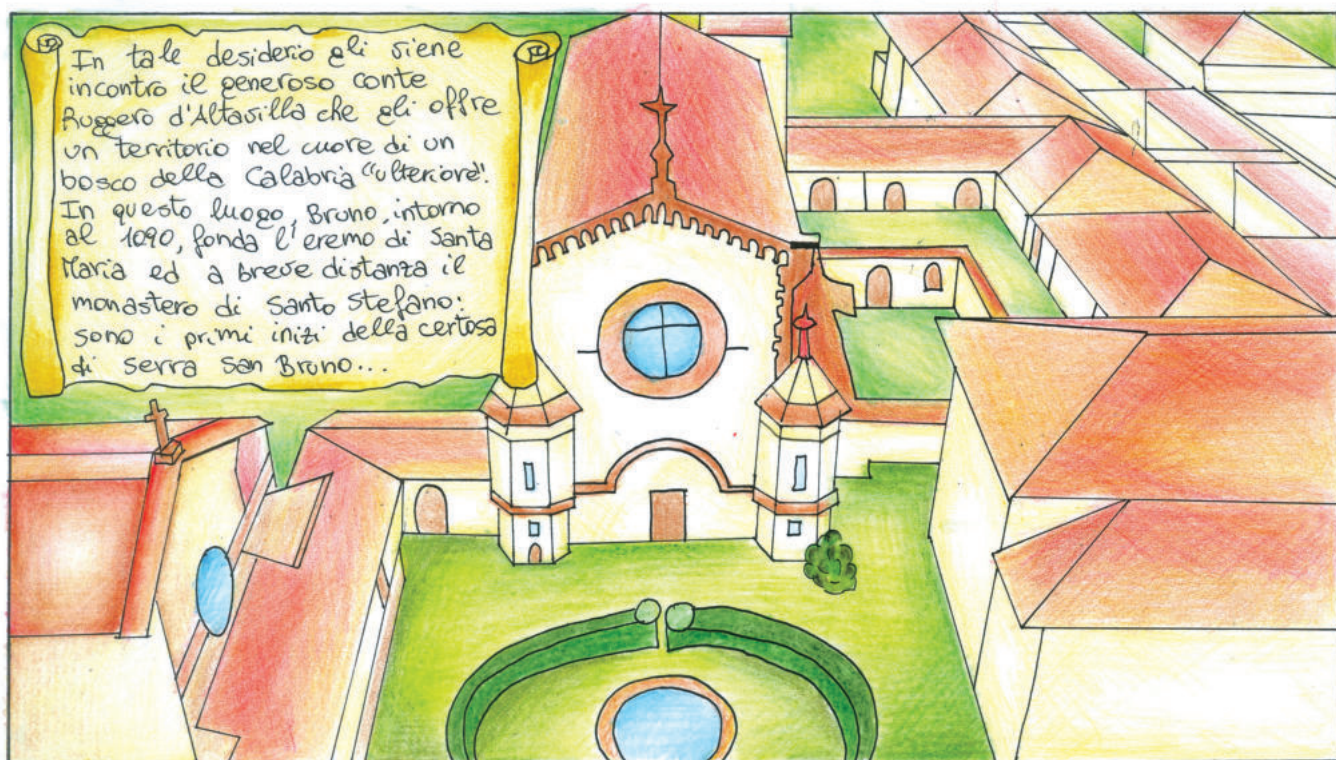 In tale desiderio gli viene
incontro il generoso conte
Ruggero d'Altavilla che gli offre
un territorio nel cuore di un
bosco della Calabria "ulteriore".
In questo luogo, Bruno, intorno
al 1090, fonda l'eremo di Santa
Maria ed a breve distanza il
monastero di Santo Stefano:
sono i primi inizi della certosa
di Serra San Bruno...